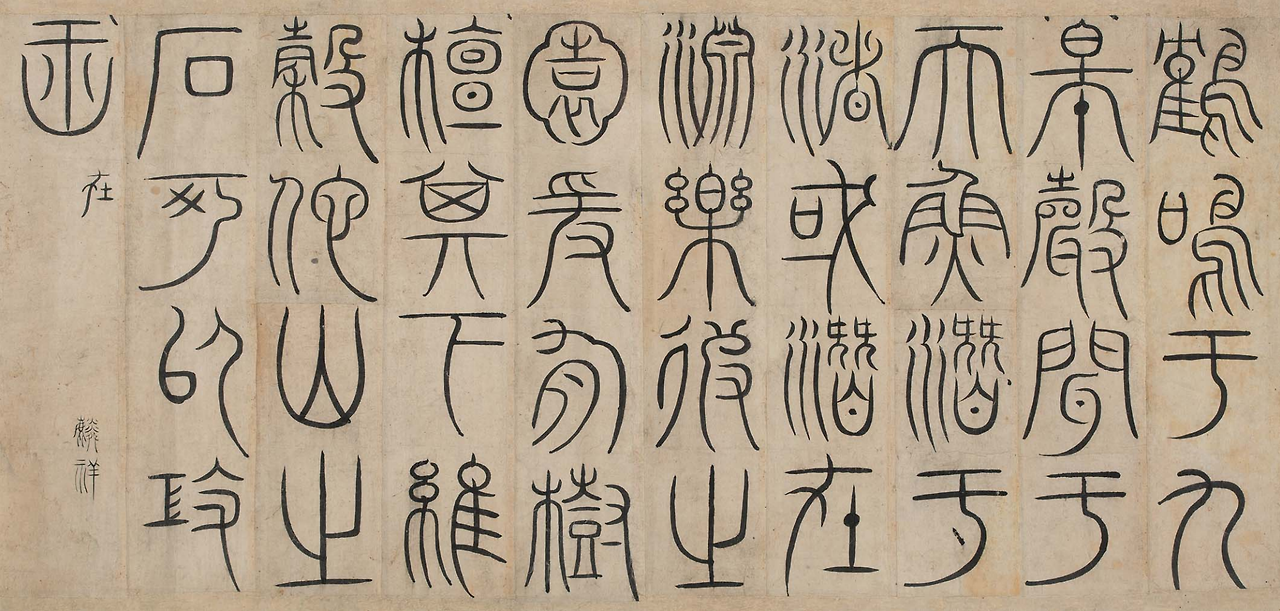 鶴鳴于九
皋聲聞于
天魚潛于
渚或潛在
淵樂彼之
園爰有樹
檀其下維
穀佗山之
石可以攻
玉
在
麟祥